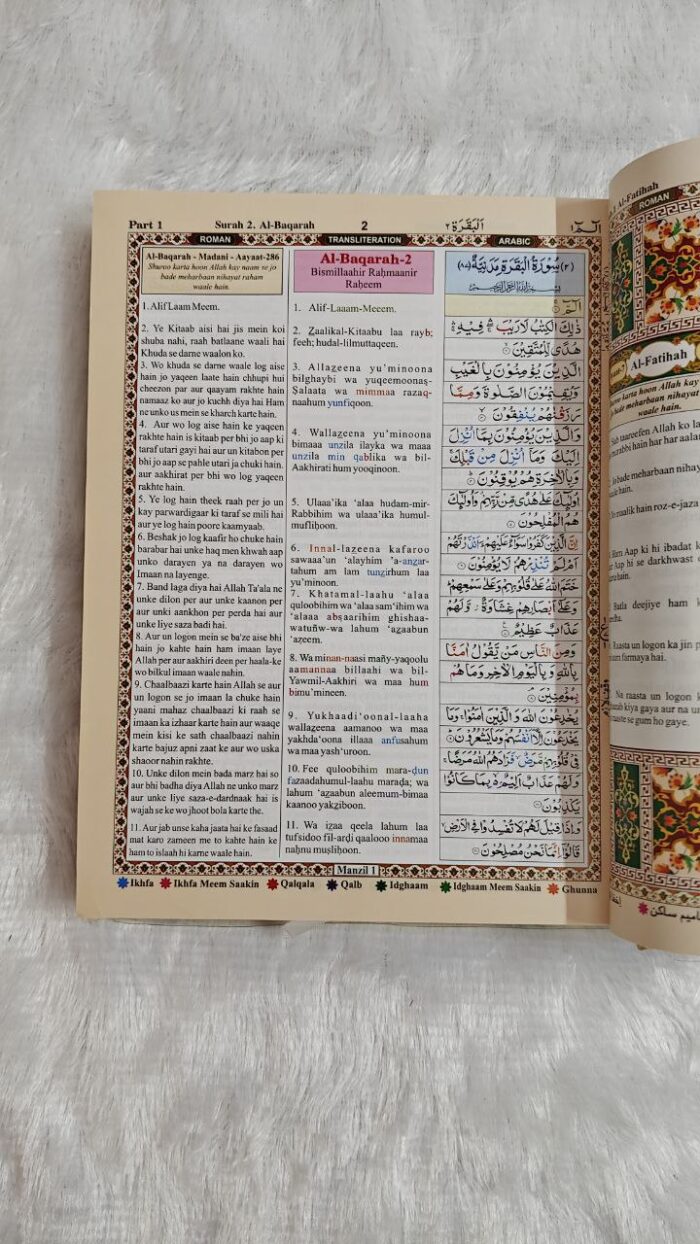 Part 1 Surah 2. Al-Baqarah 2 اَلْبَقَرَة ٢ الٓمّٓ ١
ROMAN TRANSLITERATION ARABIC
Al-Baqarah - Madani - Aayaat-286
Shuroo karta hoon Allah kay naam se jo
bade meharbaan nihayat raham
waale hain.
1. Alif Laam Meem.
2. Ye Kitaab aisi hai jis mein koi
shuba nahi, raah batlaane waali hai
Khuda se darne waalon ko.
3. Wo khuda se darne waale log aise
hain jo yaqeen laate hain chhupi hui
cheezon par aur qaayam rakhte hain
namaaz ko aur jo kuchh diya hai Ham
ne unko us mein se kharch karte hain.
4. Aur wo log aise hain ke yaqeen
rakhte hain is kitaab per bhi jo aap ki
taraf utari gayi hai aur un kitabon per
bhi jo aap se pahle utari ja chuki hain.
aur aakhirat per bhi wo log yaqeen
rakhte hain.
5. Ye log hain theek raah per jo un
kay parwardigaar ki taraf se mili hai
aur ye log hain poore kaamyaab.
6. Beshak jo log kaafir ho chuke hain
barabar hai unke haq men khwah aap
unko darayen ya na darayen wo
Imaan na layenge.
7. Band laga diya hai Allah Ta'ala ne
unke dilon per aur unke kaanon per
aur unki aankhon per perda hai aur
unke liye saza badi hai.
8. Aur un logon mein se ba'ze aise bhi
hain jo kahte hain ham imaan laye
Allah per aur aakhiri deen per haala-ke
wo bilkul imaan waale nahin.
9. Chaalbaazi karte hain Allah se aur
un logon se jo imaan la chuke hain
yaani mahaz chaalbaazi ki raah se
imaan ka izhaar karte hain aur waaqe
mein kisi ke sath chaalbaazi nahin
karte bajuz apni zaat ke aur wo uska
shaoor nahin rakhte.
10. Unke dilon mein bada marz hai so
aur bhi badha diya Allah ne unko marz
aur unke liye saza-e-dardnaak hai is
wajah se ke wo jhoot bola karte the.
11. Aur jab unse kaha jaata hai ke fasaad
mat karo zameen me to kahte hain ke
ham to islaah hi karne waale hain.
Al-Baqarah-2
Bismillaahir Raḥmaanir
Raḥeem
1. Alif-Laaam-Meeem.
2. Ẕaalikal-Kitaabu laa rayb;
feeh; hudal-lilmuttaqeen.
3. Allaẕeena yu'minoona
bilghaybi wa yuqeemoonaṣ-
Ṣalaata wa mimmaa razaq-
naahum yunfiqoon.
4. Wallaẕeena yu'minoona
bimaaa unzila ilayka wa maaa
unzila min qablika wa bil-
Aakhirati hum yooqinoon.
5. Ulaaa'ika 'alaa hudam-mir-
Rabbihim wa ulaaa'ika humul-
mufliḥoon.
6. Innal-lazeena kafaroo
sawaaa'un 'alayhim 'a-anẕar-
tahum am lam tunẕirhum laa
yu'minoon.
7. Khatamal-laahu 'alaa
quloobihim wa 'alaa sam'ihim wa
'alaaa abṣaarihim ghishaa-
watuñw-wa lahum 'aẕaabun
'aẓeem.
8. Wa minan-naasi mañy-yaqoolu
aamannaa billaahi wa bil-
Yawmil-Aakhiri wa maa hum
bimu'mineen.
9. Yukhaadi'oonal-laaha
wallaẕeena aamanoo wa maa
yakhda'oona illaaa anfusahum
wa maa yash'uroon.
10. Fee quloobihim mara-ḍun
fazaadahumul-laahu maraḍa; wa
lahum 'aẕaabun aleemum-bimaa
kaanoo yakẕiboon.
11. Wa iẕaa qeela lahum laa
tufsidoo fil-arḍi qaalooo innamaa
naḥnu muṣliḥoon.
(٢) سُوْرَةُ الْبَقَرَةِ مَدَنِيَّةٌ (٨٧)
الٓمّٓ
ذٰلِكَ الْكِتٰبُ لَا رَيْبَ فِيْهِ
هُدًى لِّلْمُتَّقِيْنَ
الَّذِيْنَ يُؤْمِنُوْنَ بِالْغَيْبِ
وَيُقِيْمُوْنَ الصَّلٰوةَ وَمِمَّا
رَزَقْنٰهُمْ يُنْفِقُوْنَ
وَالَّذِيْنَ يُؤْمِنُوْنَ بِمَآ اُنْزِلَ
اِلَيْكَ وَمَآ اُنْزِلَ مِنْ قَبْلِكَ
وَبِالْاٰخِرَةِ هُمْ يُوْقِنُوْنَ
اُولٰٓئِكَ عَلٰى هُدًى مِّنْ رَّبِّهِمْ وَاُولٰٓئِكَ
هُمُ الْمُفْلِحُوْنَ
اِنَّ الَّذِيْنَ كَفَرُوْا سَوَآءٌ عَلَيْهِمْ ءَاَنْذَرْتَهُمْ
اَمْ لَمْ تُنْذِرْهُمْ لَا يُؤْمِنُوْنَ
خَتَمَ اللّٰهُ عَلٰى قُلُوْبِهِمْ وَعَلٰى سَمْعِهِمْ
وَعَلٰٓى اَبْصَارِهِمْ غِشَاوَةٌ وَّلَهُمْ
عَذَابٌ عَظِيْمٌ
وَمِنَ النَّاسِ مَنْ يَّقُوْلُ اٰمَنَّا
بِاللّٰهِ وَبِالْيَوْمِ الْاٰخِرِ وَمَا هُمْ
بِمُؤْمِنِيْنَ
يُخٰدِعُوْنَ اللّٰهَ وَالَّذِيْنَ اٰمَنُوْا وَمَا
يَخْدَعُوْنَ اِلَّآ اَنْفُسَهُمْ وَمَا يَشْعُرُوْنَ
فِيْ قُلُوْبِهِمْ مَّرَضٌ فَزَادَهُمُ اللّٰهُ مَرَضًا
وَلَهُمْ عَذَابٌ اَلِيْمٌۢ بِمَا كَانُوْا
يَكْذِبُوْنَ
وَاِذَا قِيْلَ لَهُمْ لَا تُفْسِدُوْا فِى الْاَرْضِ
قَالُوْٓا اِنَّمَا نَحْنُ مُصْلِحُوْنَ
Manzil 1
Ikhfa Ikhfa Meem Saakin Qalqala Qalb Idghaam Idghaam Meem Saakin Ghunna
Al-Fatihah
ROMAN
Al-Fatihah
Shuroo karta hoon Allah kay
bade meharbaan nihayat
waale hain.
Sab taareefen Allah ko la
murabbi hain har har aala
bade meharbaan nihay
waale hain.
maalik hain roz-e-jaza
Ham Aap ki hi ibadat k
Aap hi se darkhwast
karte hain.
Batla deejiye ham k
Raasta un logon ka jin p
farmaya hai.
Na raasta un logon k
kiya gaya aur na un
raaste se gum ho gaye.
ميم ساكن